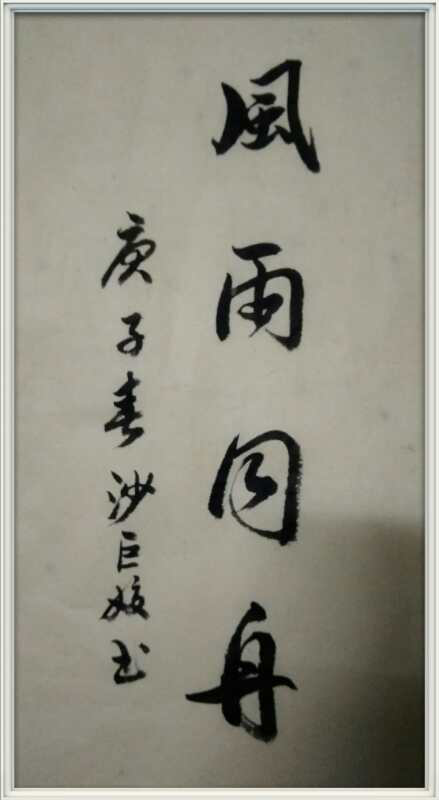 風雨同舟
庚子春沙巨姣书